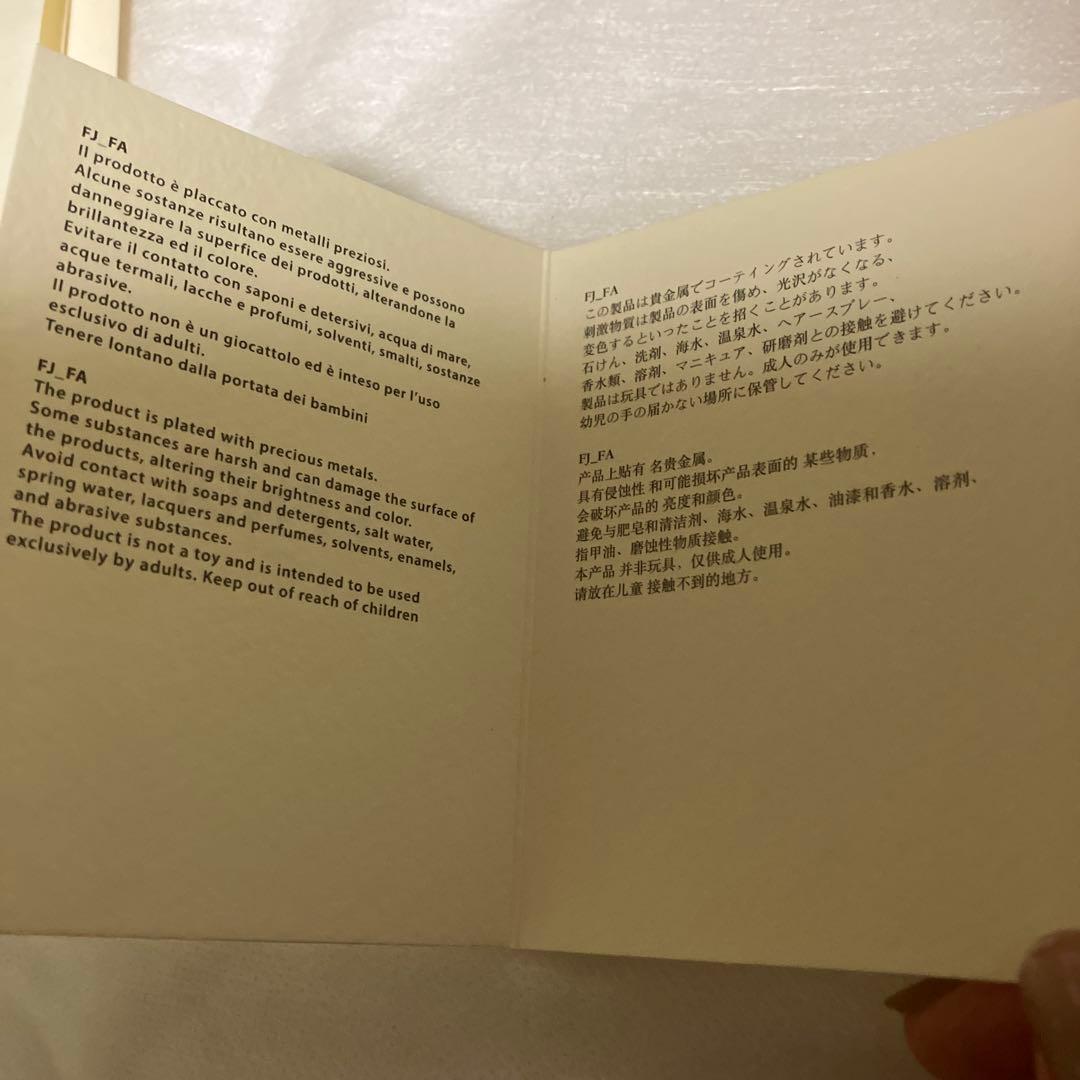 FJ_FA
Il prodotto è placcato con metalli preziosi.
Alcune sostanze risultano essere aggressive e possono
danneggiare la superfice dei prodotti, alterandone la
brillantezza ed il colore.
Evitare il contatto con saponi e detersivi, acqua di mare,
acque termali, lacche e profumi, solventi, smalti, sostanze
abrasive.
Il prodotto non è un giocattolo ed è inteso per l'uso
esclusivo di adulti.
Tenere lontano dalla portata dei bambini
FJ_FA
The product is plated with precious metals.
Some substances are harsh and can damage the surface of
the products, altering their brightness and color.
Avoid contact with soaps and detergents, salt water,
spring water, lacquers and perfumes, solvents, enamels,
and abrasive substances.
The product is not a toy and is intended to be used
exclusively by adults. Keep out of reach of children
FJ_FA
この製品は貴金属でコーティングされています。
刺激物質は製品の表面を傷め、光沢がなくなる、
変色するといったことを招くことがあります。
石けん、洗剤、海水、温泉水、ヘアースプレー、
香水類、溶剤、マニキュア、研磨剤との接触を避けてください。
製品は玩具ではありません。成人のみが使用できます。
幼児の手の届かない場所に保管してください。
FJ_FA
产品上贴有 名贵金属。
具有侵蚀性 和可能损坏产品表面的 某些物质，
会破坏产品的 亮度和颜色。
避免与肥皂和清洁剂、海水、温泉水、油漆和香水、溶剂、
指甲油、磨蚀性物质接触。
本产品 并非玩具，仅供成人使用。
请放在儿童 接触不到的地方。